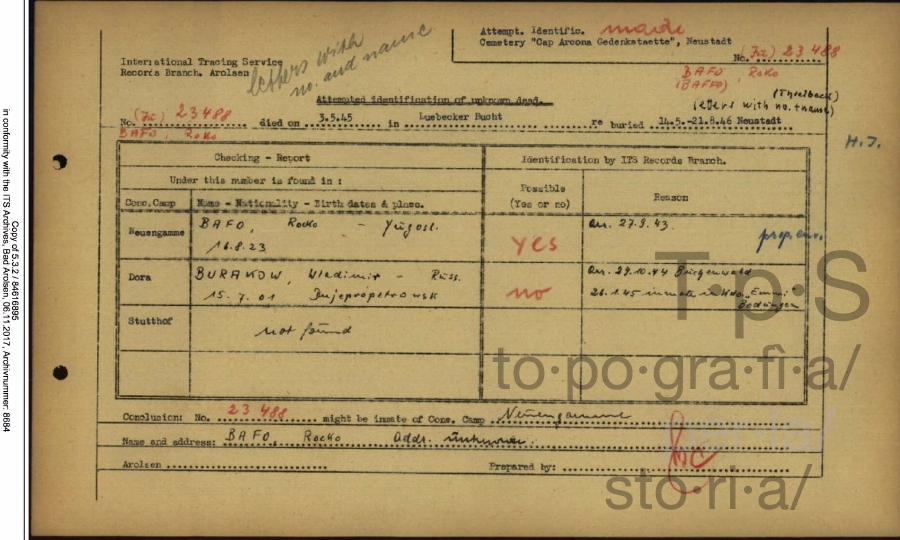 Attempt. Identific. made
Cemetery "Cap Arcona Gedenkstaette", Neustadt
No. (Jt) 23 488
letters with
no. and name
International Tracing Service
Records Branch. Arolsen
BAFO, Roko
(BAFFO)
(Thielbeck)
Attempted identification of unknown dead.
letters with no. + name
No. (Jt) 23488 died on 3.5.45 in Luebecker Bucht re buried 14.5.-21.8.46 Neustadt
BAFO, Roko
H.J.
Checking - Report
Identification by ITS Records Branch.
Under this number is found in :
Conc.Camp
Name - Nationality - Birth dates & place.
Possible
(Yes or no)
Reason
Neuengamme
BAFO, Rocko - Yugosl.
16.8.23
yes
arr. 27.9.43.
Dora
BURAKOW, Wladimir - Russ.
15. 7. 01 Dnjepropetrowsk
no
arr. 29.10.44
26.1.45 inmate in Kdo. "Emmi"
Bodungen
Stutthof
not found
Conclusion: No. 23 488 might be inmate of Conc. Camp Neuengamme
Name and address: BAFO Rocko Addr. unknown.
Arolsen
Prepared by:
T·p·S
to·po·gra·fi·a/
sto·ri·a/
in conformity with the ITS Archives, Bad Arolsen, 06.11.2017, Archivnummer: 8684
Copy of 5.3.2 / 84616895